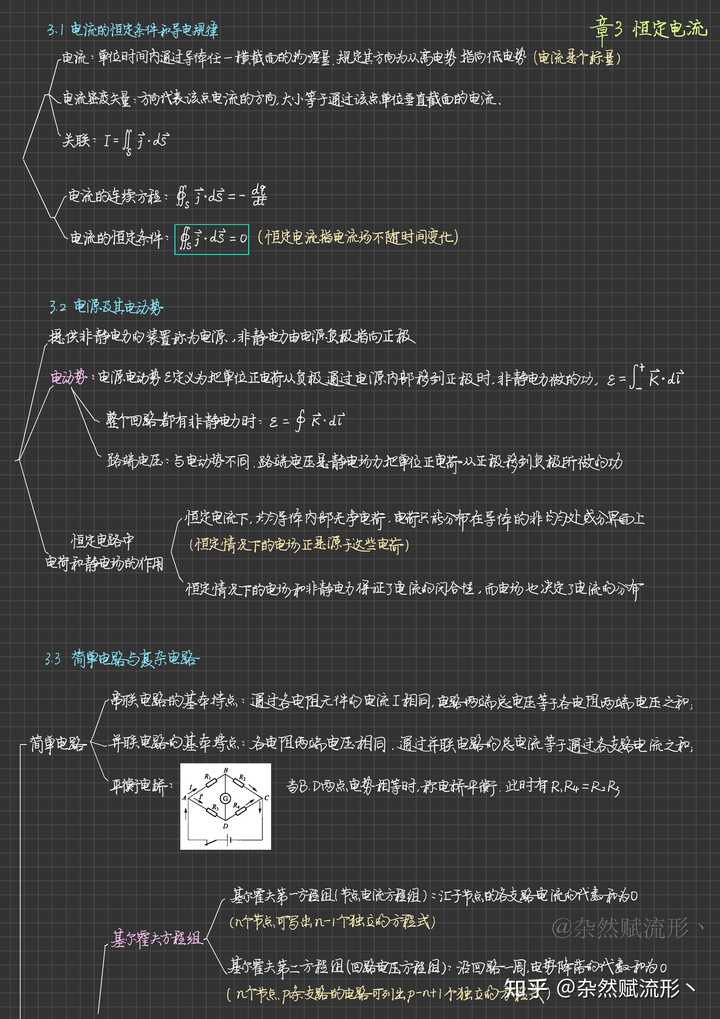 章3 恒定电流
3.1 电流的恒定条件和导电规律
电流：单位时间内通过导体任一横截面的物理量.规定其方向为从高电势指向低电势 (电流是个标量)
电流密度矢量：方向代表该点电流的方向,大小等于通过该点单位垂直截面的电流.
关联：I=∬_S j⃗·dS⃗
电流的连续方程：∯_S j⃗·dS⃗=-dq/dt
电流的恒定条件：∯_S j⃗·dS⃗=0 (恒定电流指电流场不随时间变化)
3.2 电源及其电动势
提供非静电力的装置称为电源,非静电力由电源负极指向正极
电动势：电源电动势ε定义为把单位正电荷从负极通过电源内部移到正极时,非静电力做的功. ε=∫₋⁺ K⃗·dl⃗
整个回路都有非静电力时：ε=∮K⃗·dl⃗
路端电压：与电动势不同,路端电压是静电场力把单位正电荷从正极移到负极所做的功
恒定电路中
电荷和静电场的作用
恒定电流下,均匀导体内部无净电荷,电荷只能分布在导体的非均匀处或分界面上
(恒定情况下的电场正是源于这些电荷)
恒定情况下的电场和非静电力保证了电流的闭合性,而电场也决定了电流的分布
3.3 简单电路与复杂电路
简单电路
串联电路的基本特点：通过各电阻元件的电流I相同,电路两端总电压等于各电阻两端电压之和;
并联电路的基本特点：各电阻两端电压相同.通过并联电路的总电流等于通过各支路电流之和;
平衡电桥：
B
R₁ R₂
A G C
R₃ R₄
D
当B.D两点电势相等时,称电桥平衡.此时有R₁R₄=R₂R₃
基尔霍夫方程组
基尔霍夫第一方程组(节点电流方程组)：汇于节点的各支路电流的代数和为0
(n个节点,可写出n-1个独立的方程式)
基尔霍夫第二方程组(回路电压方程组)：沿回路一周,电势降落的代数和为0
(n个节点,p条支路的电路可列出p-n+1个独立的方程式)
@杂然赋流形丶
知乎 @杂然赋流形丶